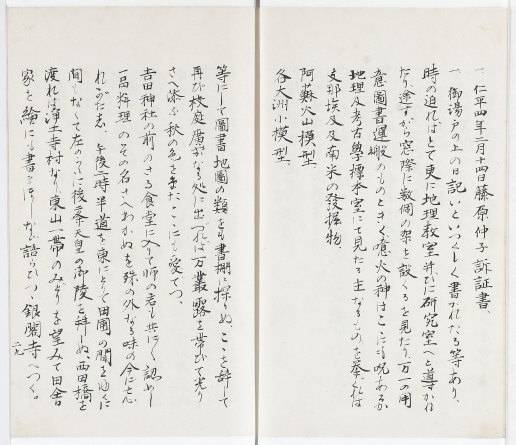 一、仁平四年二月十四日藤原仲子訴証書
一、御湯戸の上の日記 いといつくしく書かれたる等あり、
時の迫ればとて更に地理教室并びに研究室へと導かれ
たり途すがら窓際に数個の架を設くるを見たり、万一の用
意圖書運搬のものときく、憶火の神はこゝにも呪あるか
地理及考古學標本室にて見たる主なるものを挙ぐれば
支那埃及及南米の發掘物、
阿蘇火山模型
各大洲小模型
等にして圖書地圖の類をも書棚に探りぬ、こゝを辞して
再び校庭廣やかなる処に出づれば万叢露を帯びて光り
さへ添ふ秋の色をまたこゝにも愛でつ、
吉田神社の前のさる食堂に入りて師の君も共に認めし
一品料理のその名さへわかぬを殊の外なる味の今に忘
れがたき、午後二時半道を東にとりて田圃の間をゆくに
間もなくて左のかたに後二条天皇の御陵を拝しぬ、西田橋を
渡れば浄土寺村なり、東山一帯のみどりを望みて田舎
家を繪にも書かまほしなど語らひつゝ銀閣寺へつく。